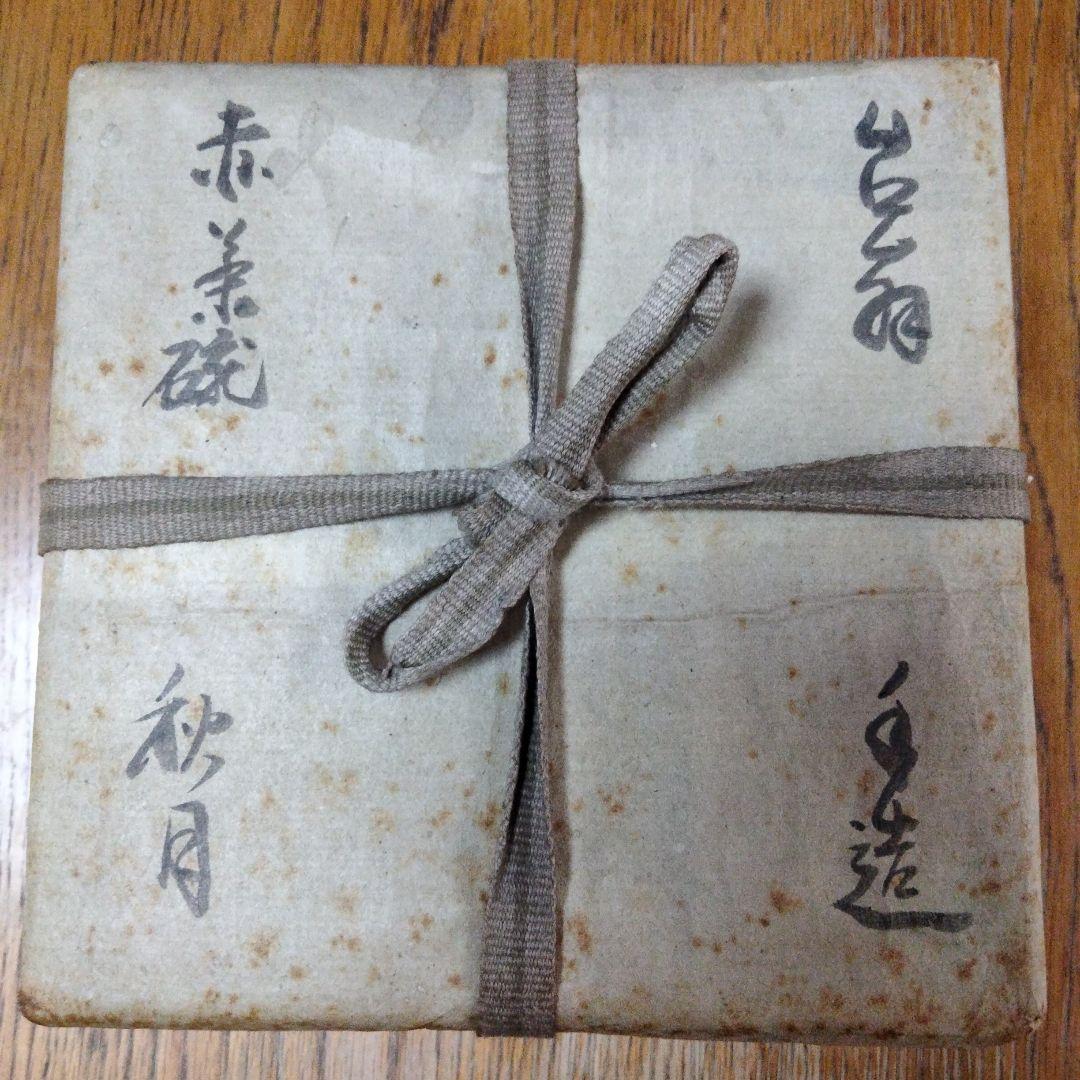 翁
手造
赤茶碗
秋月